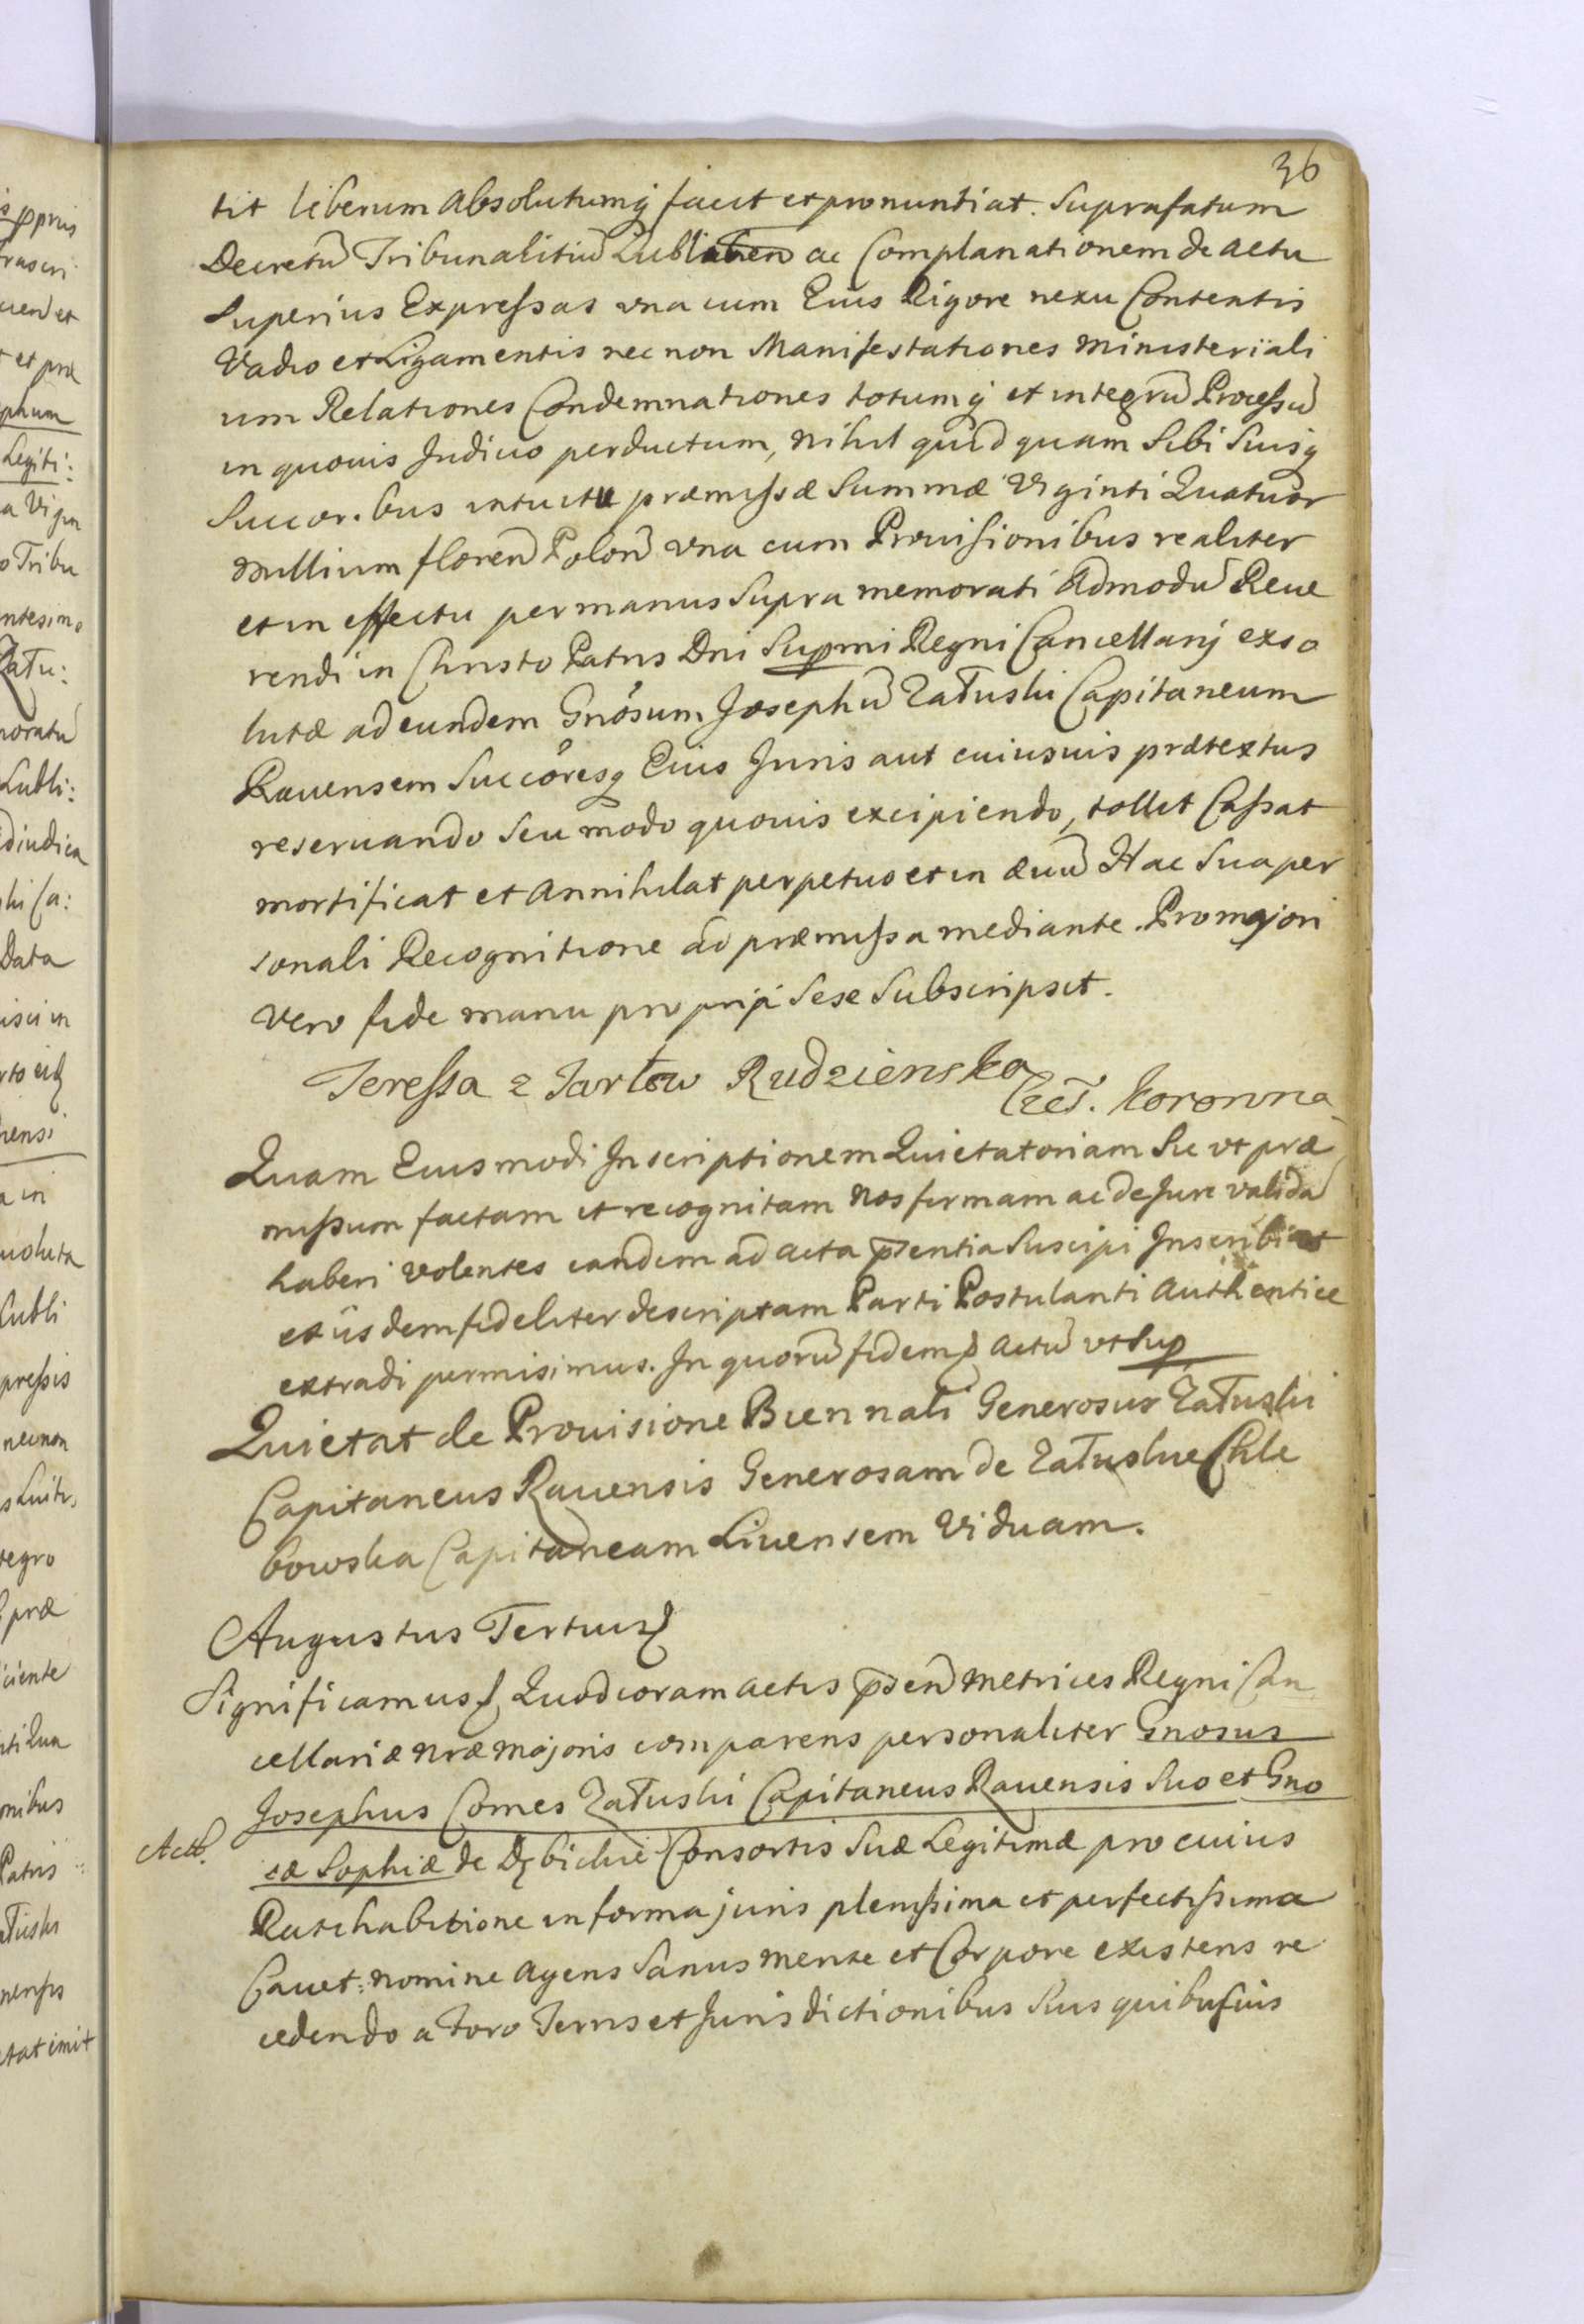 36
tit liberum Absolutumq facit et pronuntiat. Suprafatum
Decretu Tribunalitiu ac Complanationem de actu
Superius Expressas vna cum Eius Rigore nexu Contentis
Vadio et Ligamentis nec non Manifestationes Ministeriali
um Relationes Condemnationes totumq et integru Processu
in quouis Iudicio perductum, nihil quid quam Sibi Suisq
Succor.bus intuitu præmissæ Summæ Viginti Quatuor
Millium floren Polon vna cum Prouisionibus realiter
et in effectu per manus Supra memorati Admodu Reue
rendi in Christo Patris Dni Supmi Regni Cancellarij exso
lutæ ad eundem Gnosum Josephu Załuski Capitaneum
Rauensem Succoresq Eius Juris aut cuiusuis prætextus
reseruando Seu modo quouis excipiendo, tollit Cassat
mortificat et Annihilat perpetuo et in æuu Hac Sua per
sonali Recognitione ad præmissa mediante. Pro majori
vero fide manu propria Sese Subscripsit.
Teressa z Tarłow Rudzienska
Czes. Koronna
Quam Eiusmodi Inscriptionem Quietatoriam Sic vt præ
missum factam et recognitam nos firmam ac de Jure valida
haberi volentes eandem ad acta pntia Suscipi Inscribi
et iisdem fideliter descriptam Parti Postulanti Authentice
extradi permisimus. In quoru fidem Actu vt Sup
Quietat de Prouisione Biennali Generosus Załuski
Capitaneus Rauensis Generosam de Załuskie Chle
bowska Capitaneam Liuensem Viduam.
Augustus Tertius
Significamus Quod coram actis psen Metrices Regni Can
cellariæ nræ Majoris comparens personaliter Gnosus
Josephus Comes Załuski Capitaneus Rauensis Suo et Gno
Act.
sæ Sophiæ de Dębickie Consortis Suæ Legitimæ pro cuius
Ratihabitione in forma juris plenissima et perfectissima
Cauet: nomine Agens Sanus mente et Corpore existens re
cedendo a foro Terris et Jurisdictionibus Suis quibusuis